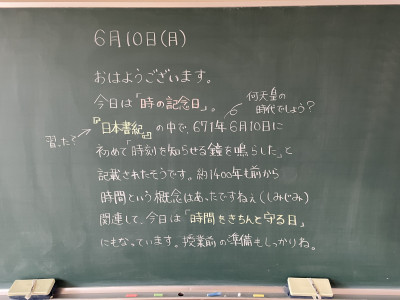 6月10日(月)
おはようございます。
今日は「時の記念日」。
何天皇の
時代でしょう?
習った?
『日本書紀』の中で、671年6月10日に
初めて「時刻を知らせる鐘を鳴らした」と
記載されたそうです。約1400年も前から
時間という概念はあったですねぇ(しみじみ)
関連して、今日は「時間をきちんと守る日」
にもなっています。授業前の準備もしっかりね。